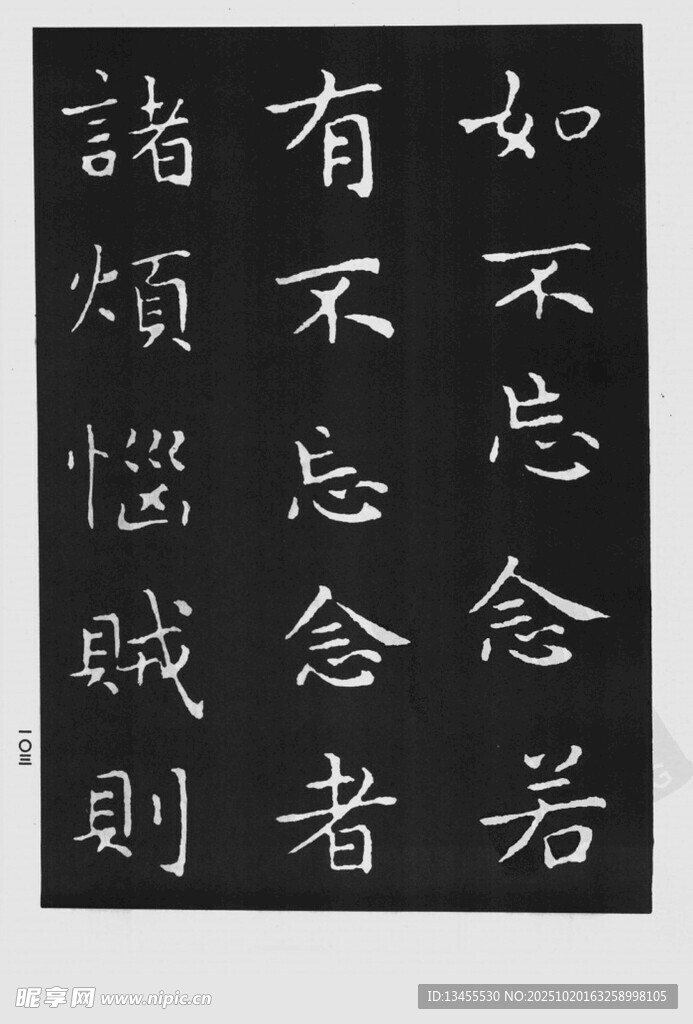 如不忘念若
有不忘念者
諸煩惱賊則
一〇三
昵享网 www.nipic.cn
ID:13455530 NO:20251020163258998105